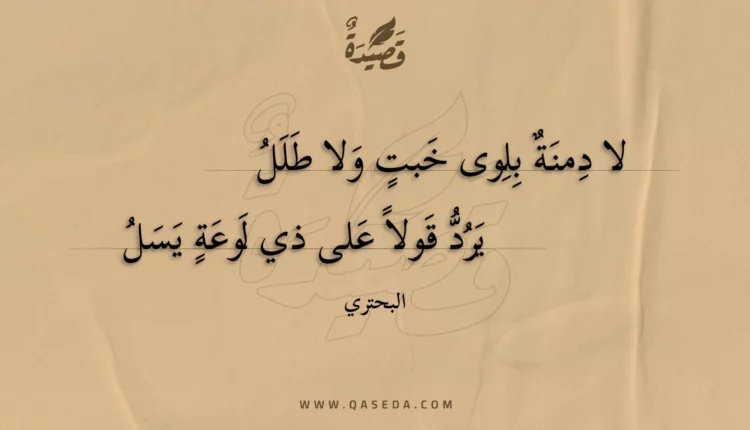 قَصِيْدَةٌ
لا دِمنَةٌ بِلِوى خَبتٍ وَلا طَلَلُ
يَرُدُّ قَولاً عَلى ذي لَوعَةٍ يَسَلُ
البحتري
WWW.QASEDA.COM